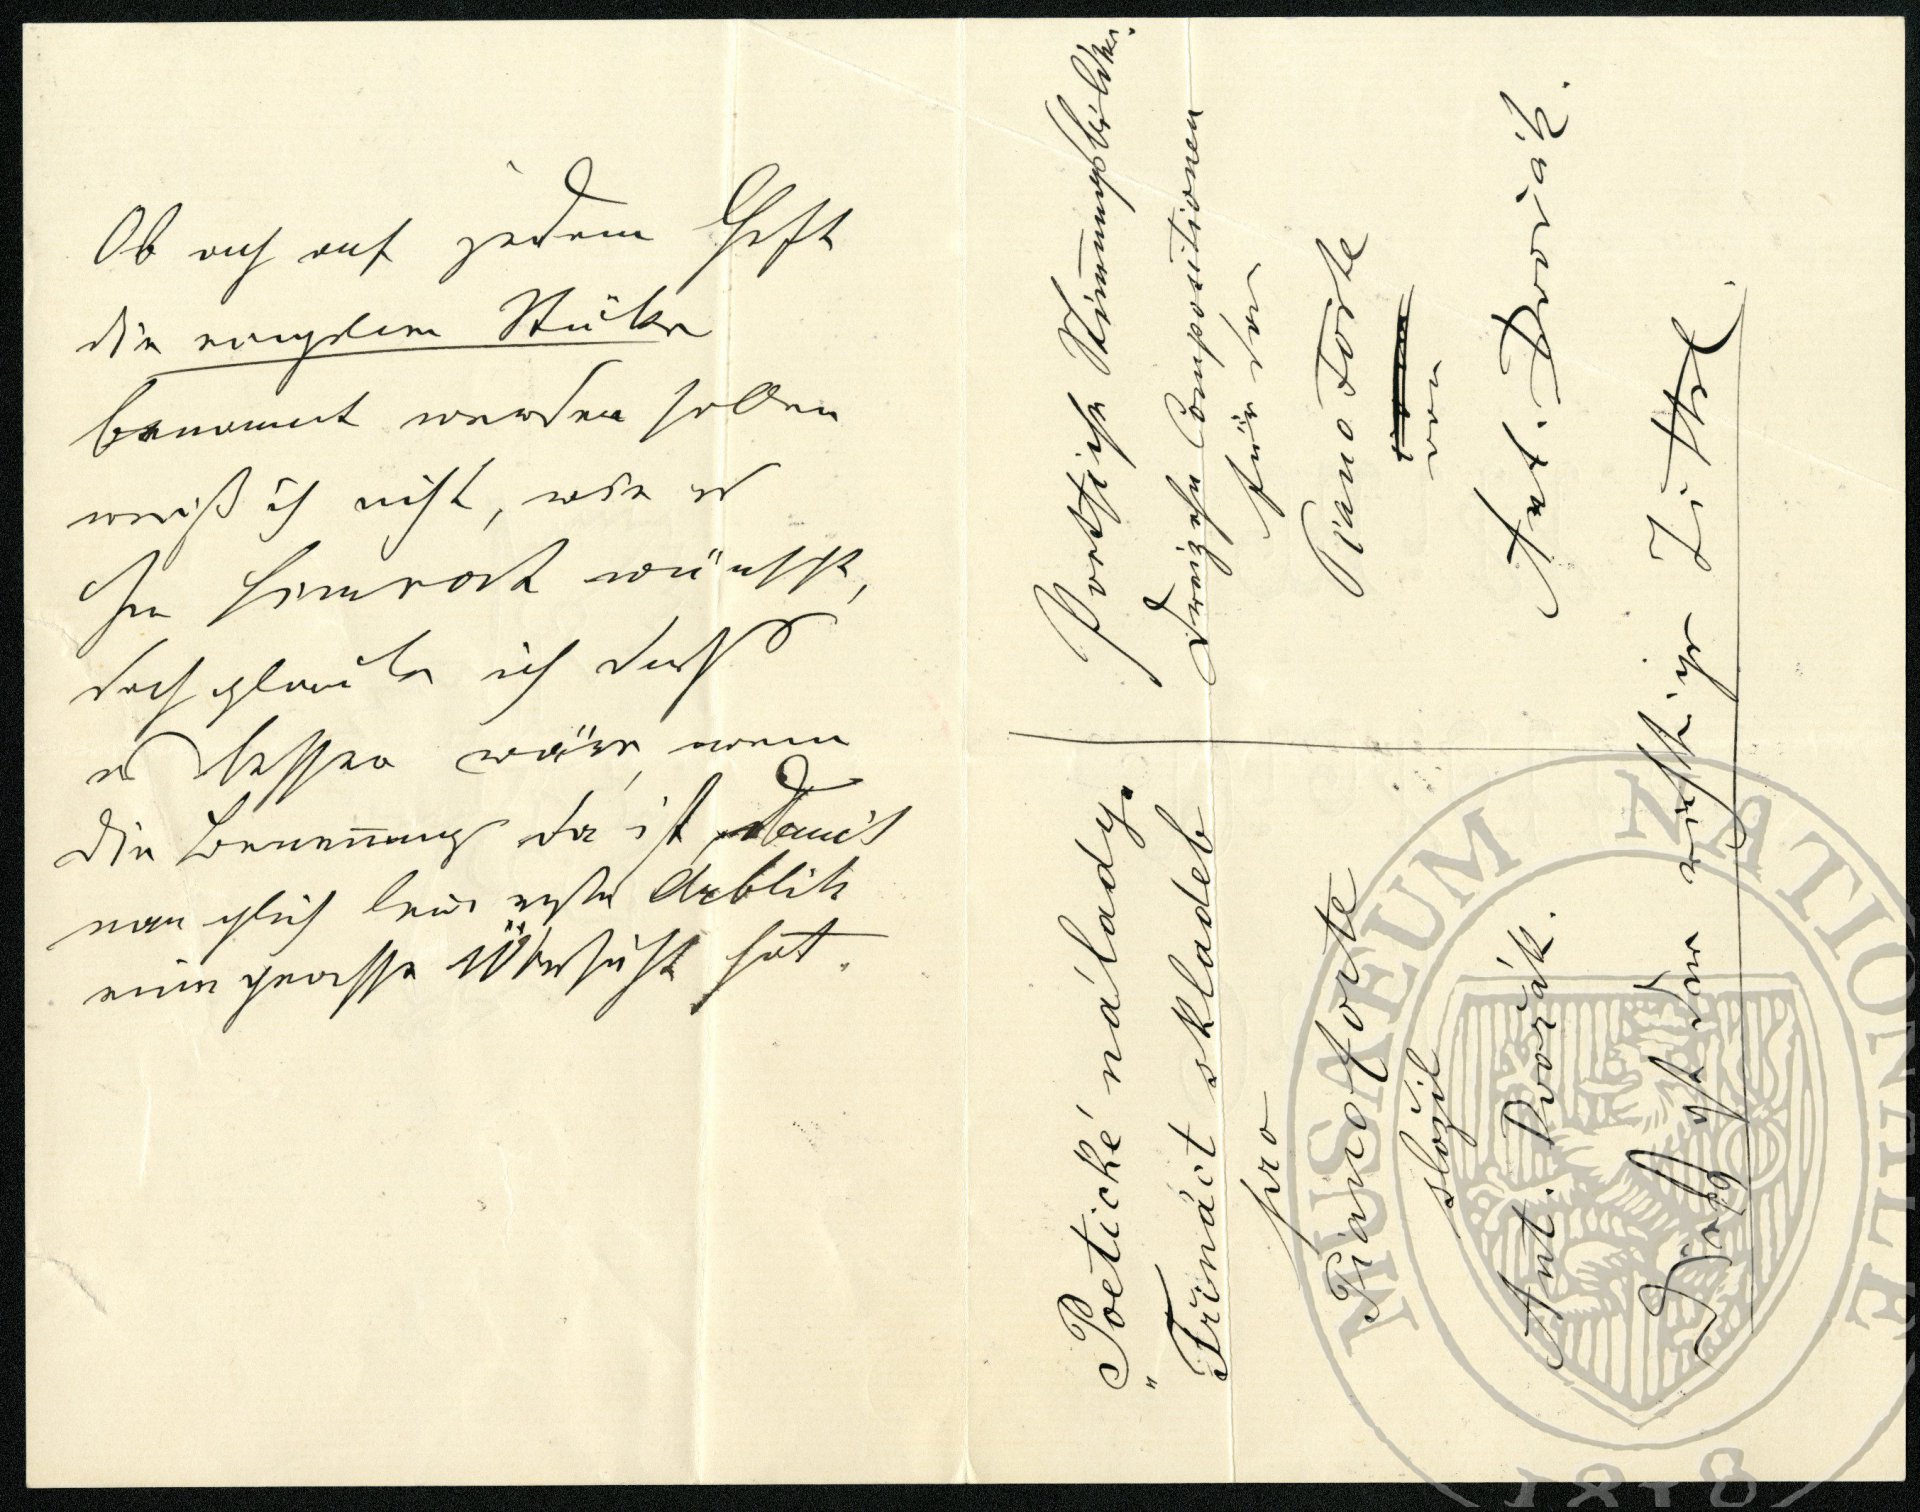 Ob auch auf jedem Heft
die einzelnen Stücke
benannt werden sollen
weiß ich nicht, wie es
Hr Simrock wünscht,
doch glaube ich daß
es besser wäre, wenn
die Benennung da ist, damit
man gleich beim ersten Anblick
eine grosse Übersicht hat.
"Poetické nálady.
Třináct skladeb
pro
Pianoforte
složil
Ant. Dvořák.
Poetische Stimmungsbilder.
Dreizehn Compositionen
für das
Piano Forte
von
Ant. Dvořák.
Dieß ist der richtige Titel.
MUSAEUM NATIONALE
1818